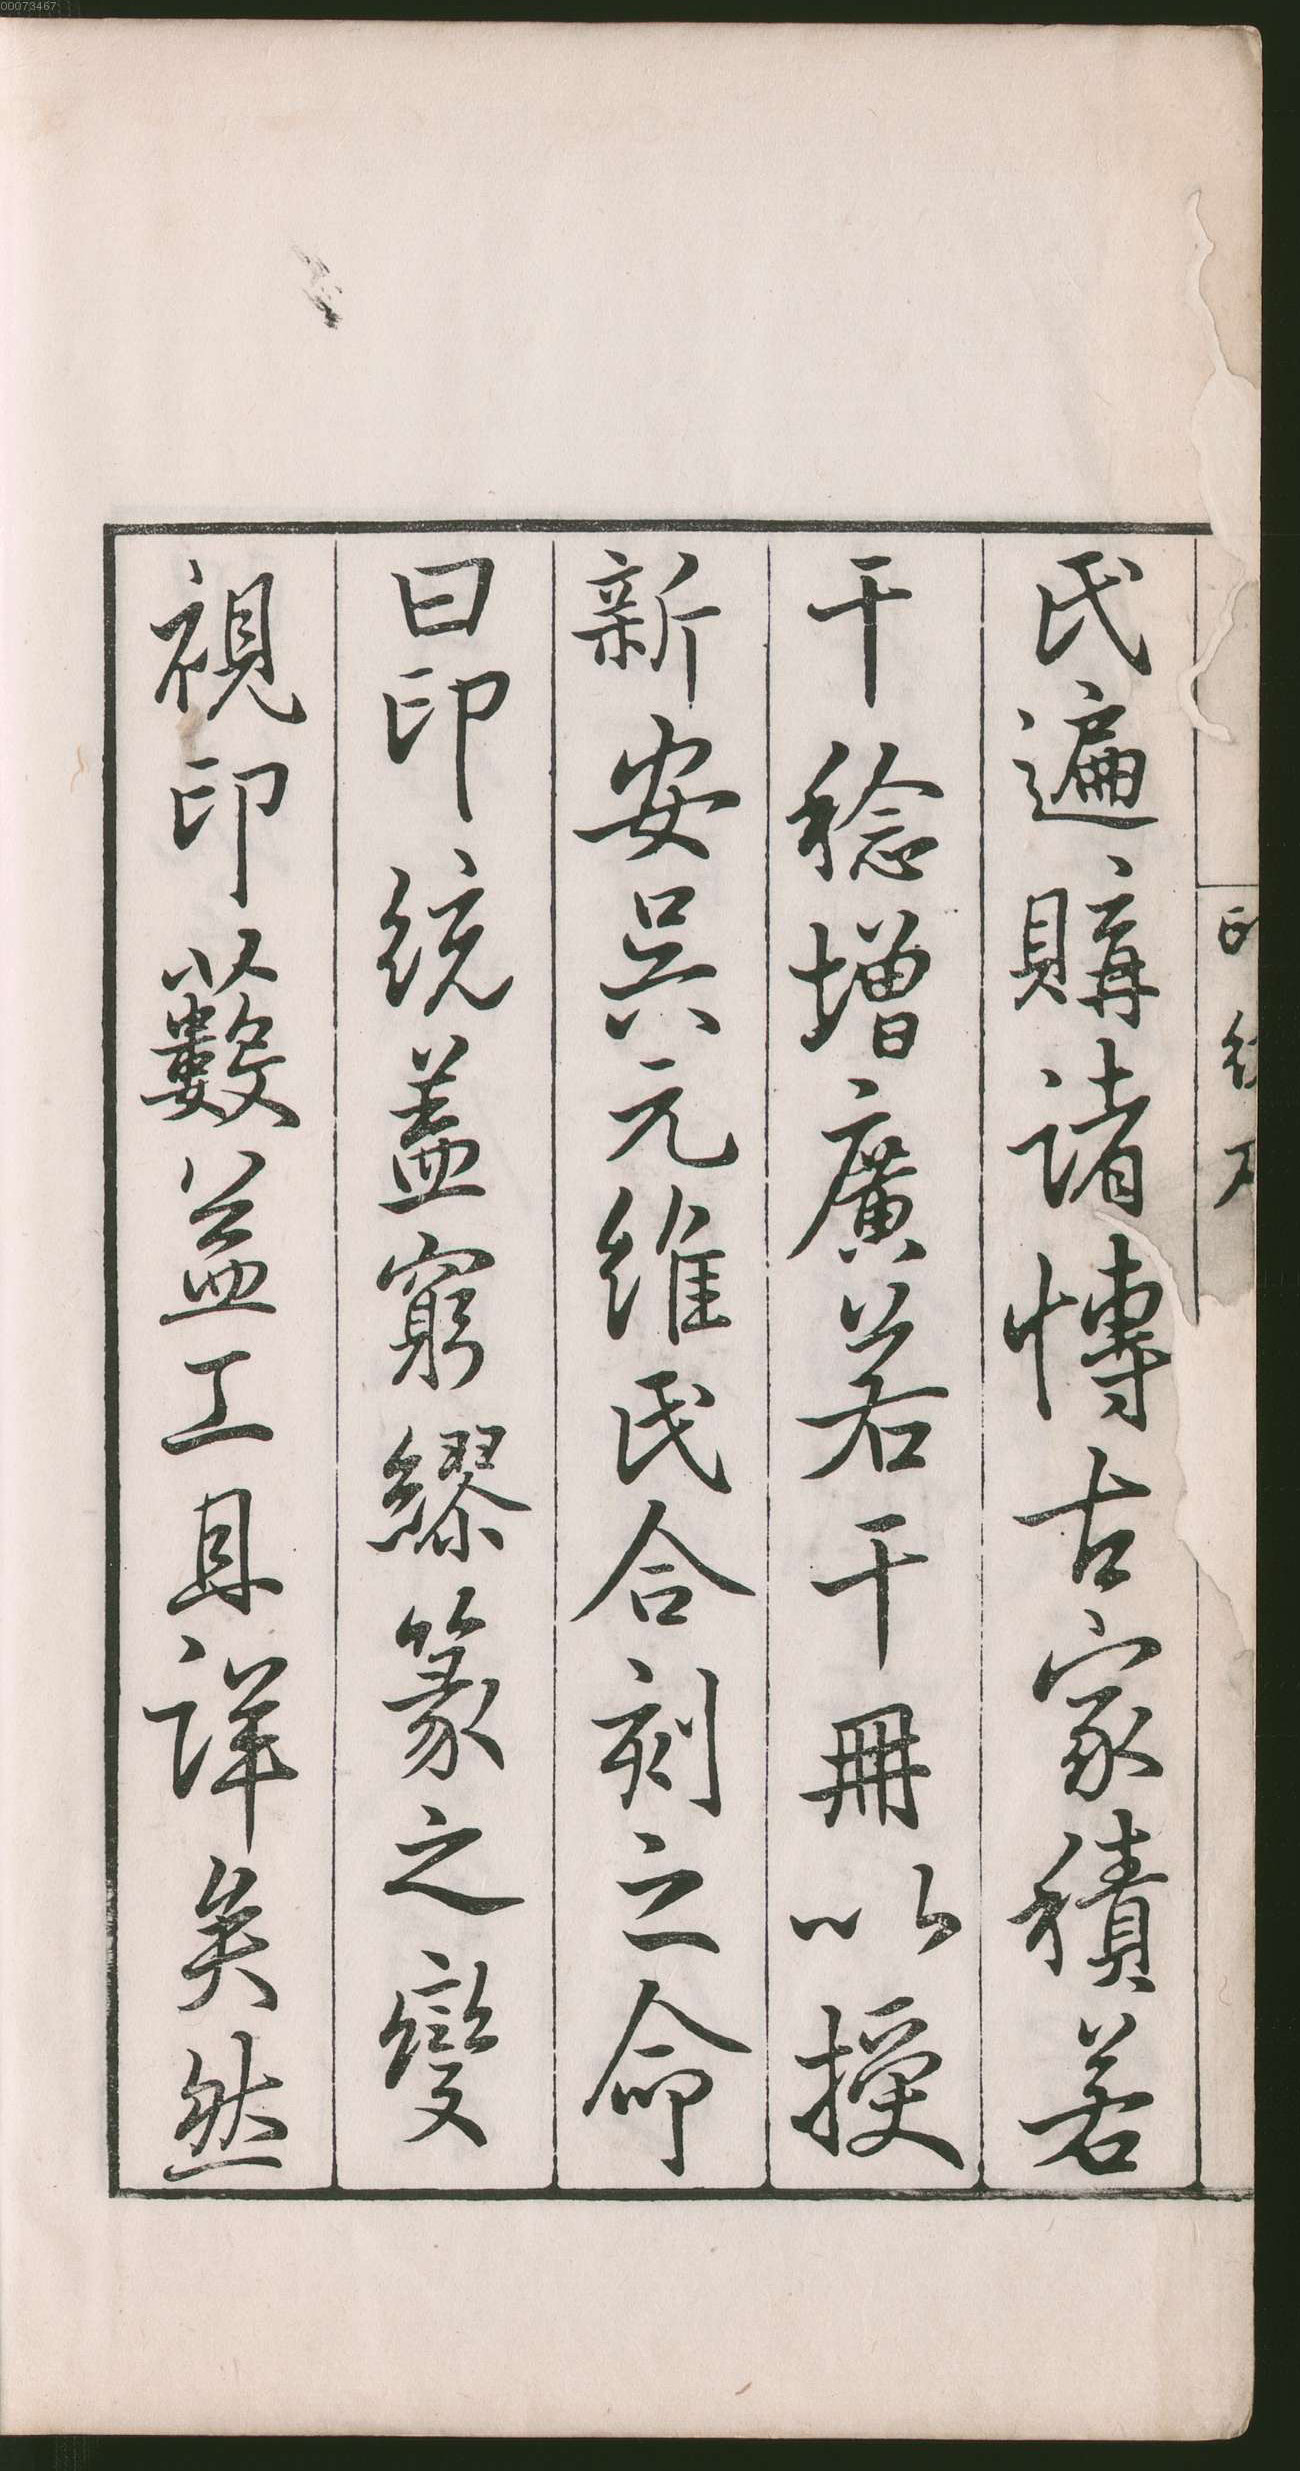 00073467
氏遍購諸博古家積若
干稔增廣若干冊以授
新安吳元維氏合刻之命
曰印統蓋窮繆篆之變
視印藪益工且詳矣然